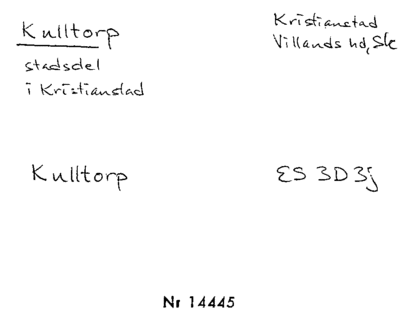 Kulltorp
stadsdel
i Kristianstad
Kristianstad
Villands hd, Sk
Kulltorp
ES 3D 3j
Nr 14445